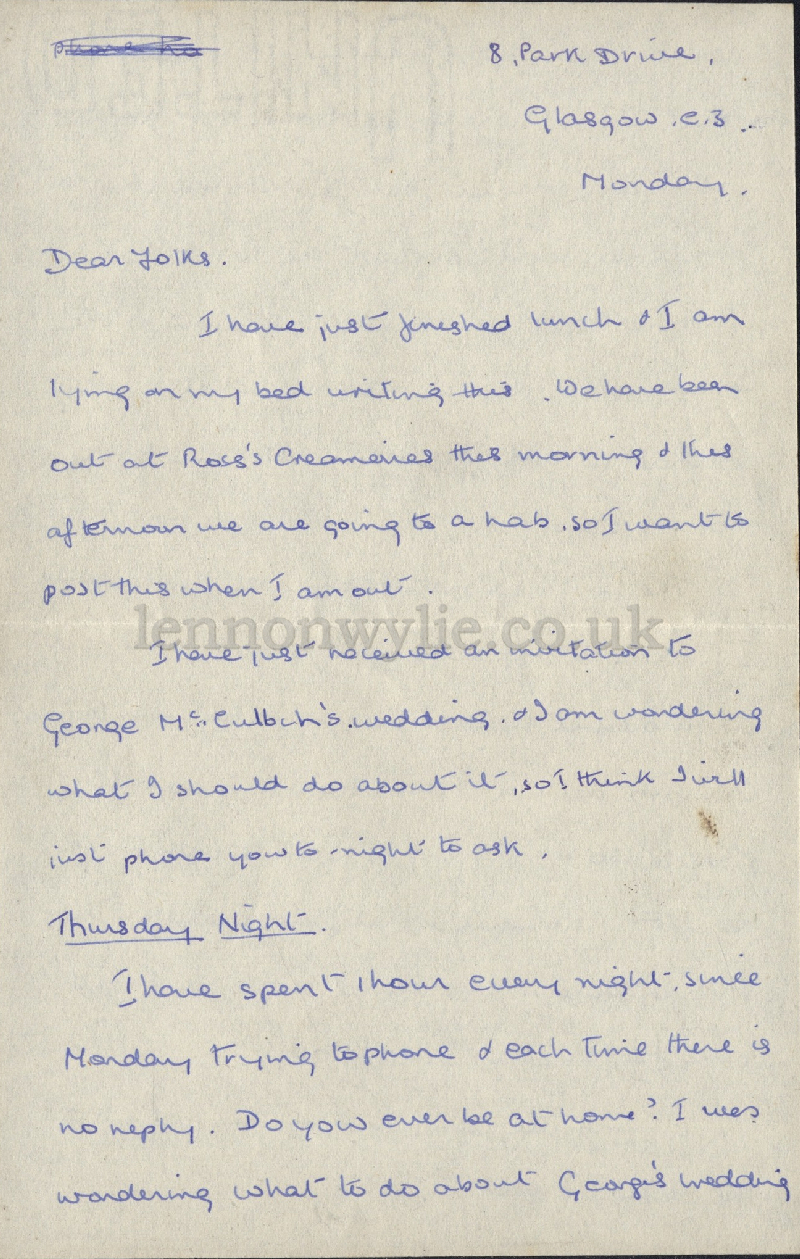 Phone No
8, Park Drive,
Glasgow. C.3.
Monday.
Dear Folks.
I have just finished lunch & I am
lying on my bed writing this. We have been
out at Ross's Creameries this morning & this
afternoon we are going to a lab, so I want to
post this when I am out.
lennonwylie.co.uk
I have just received an invitation to
George Mc.Culloch's wedding. & I am wondering
what I should do about it, so I think I will
just phone you to-night to ask.
Thursday Night.
I have spent 1 hour every night, since
Monday trying to phone & each time there is
no reply. Do you ever be at home? I was
wondering what to do about George's wedding